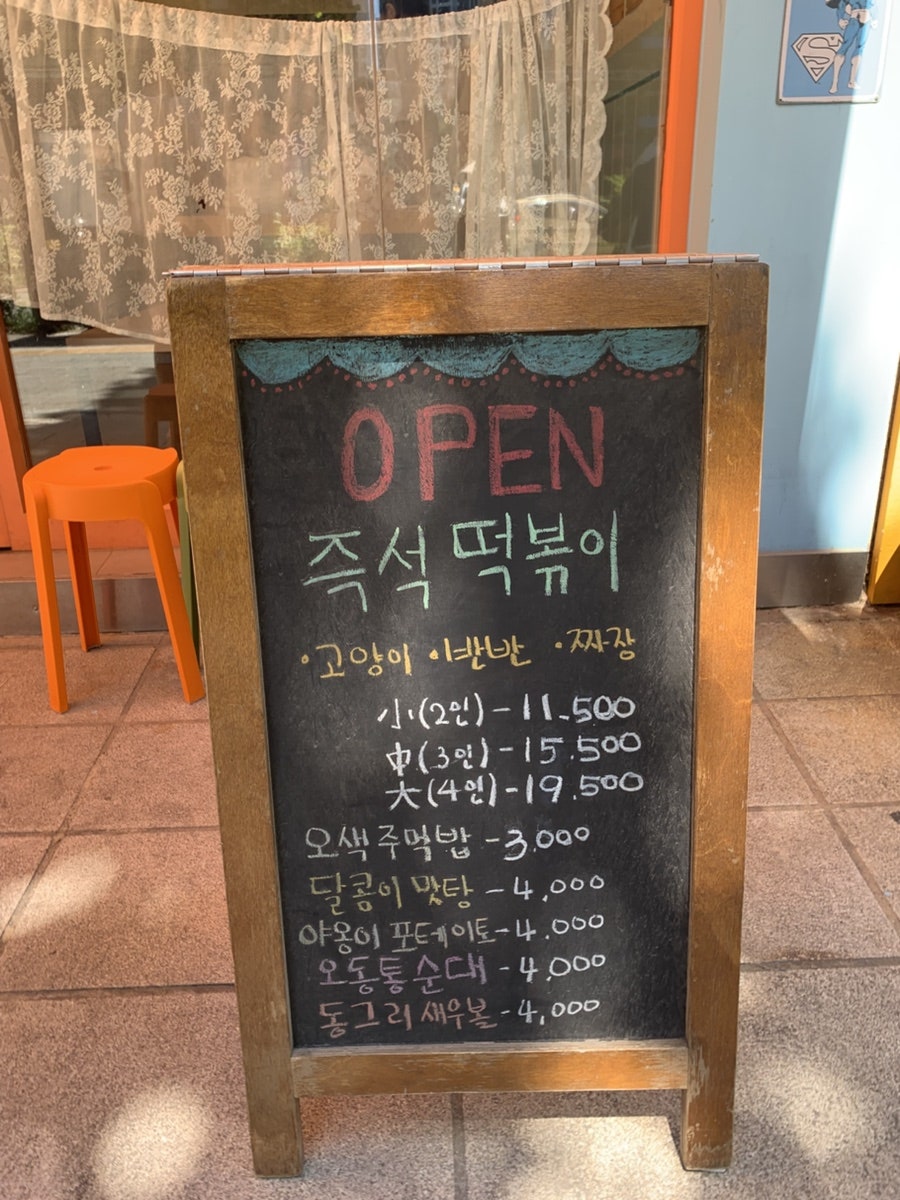 OPEN
즉석 떡볶이
·고양이 ·반반 ·짜장
小(2인)-11.500
中(3인)-15.500
大(4인)-19.500
오색주먹밥-3.000
달콤이 맛탕-4,000
야옹이 포테이토-4.000
오동통 순대-4,000
동그리 새우볼-4,000
S